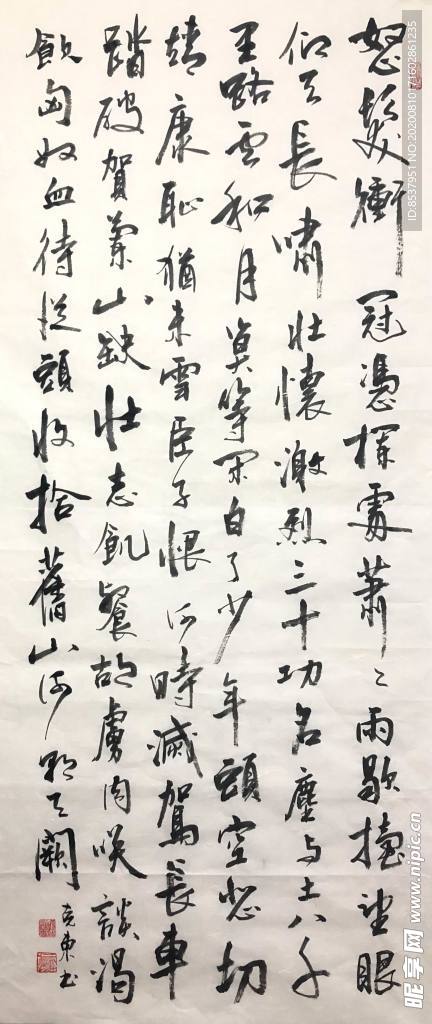 怒髮衝冠憑欄處蕭〻雨歇擡望眼
仰天長嘯壯懷激烈三十功名塵与土八千
里路雲和月莫等閒白了少年頭空悲切
靖康恥猶未雪臣子恨何時滅駕長車
踏破賀蘭山缺壯志飢餐胡虜肉咲談渴
飲匈奴血待從頭收拾舊山河朝天闕
克東书
ID:8537951 NO:20200810171602861235
昵享网 www.nipic.cn